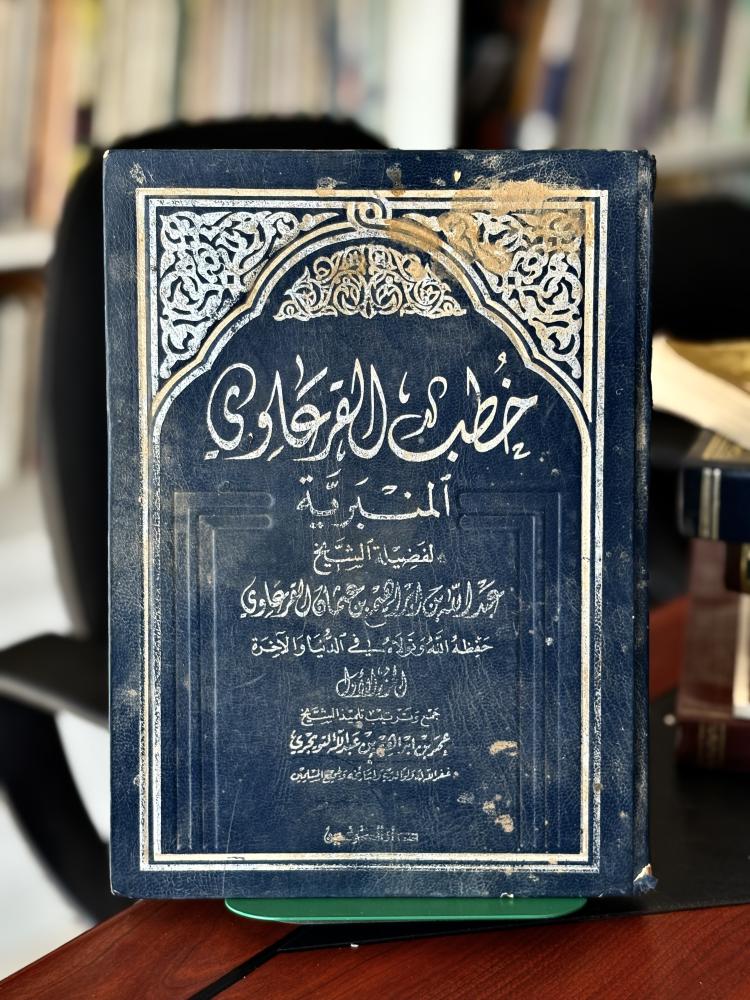 خُطب القرعاوي
المنبريَّة
لفضيلة الشيخ
عبد الله بن إبراهيم بن عثمان القرعاوي
حفظه الله وتولاه في الدنيا والآخرة
الجزء الأول
جمع وترتيب تلميذ الشيخ
عمر بن إبراهيم بن عبد الله التويجري
غفر الله له ولوالديه ولمشايخه ولجميع المسلمين